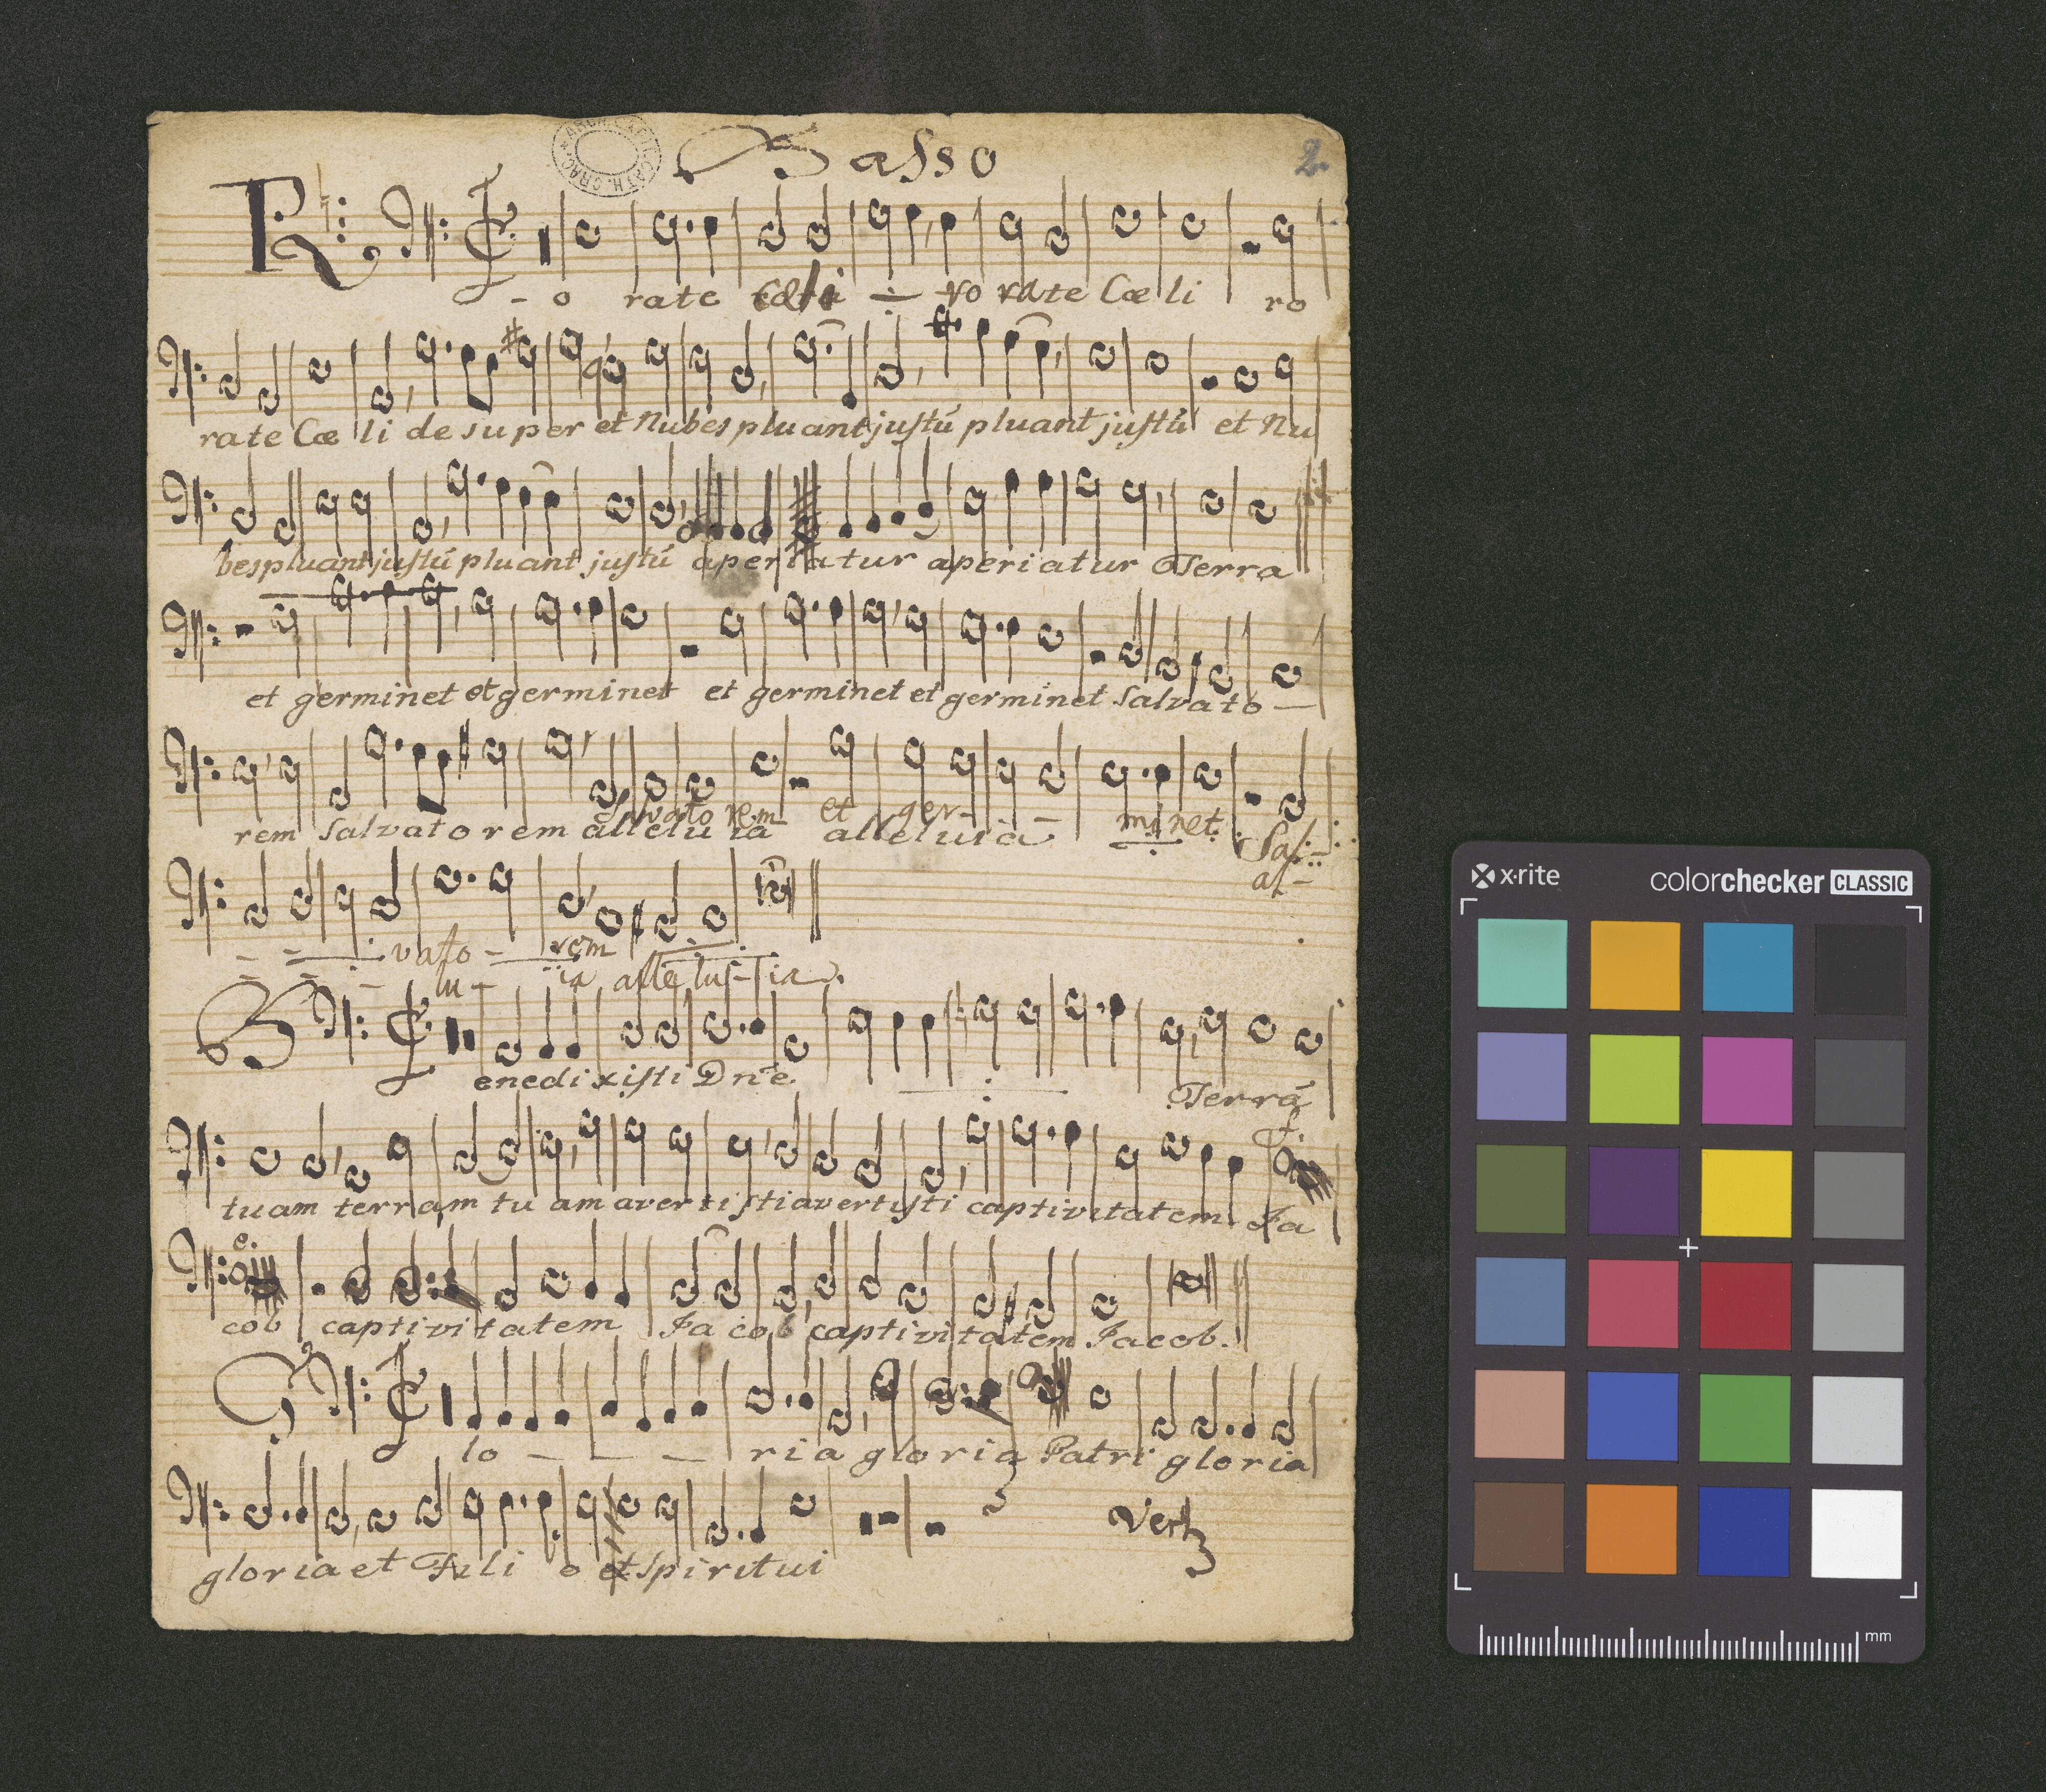 Basso
2
ARCH. CAPIT. CATH. CRAC.
R - o rate Cœli ro rate Cœ li ro
rate Cœ li de super et Nubes pluant justú pluant justú et Nu
bes pluant justú pluant justú aperiatur aperiatur Terra
et germinet et germinet et germinet et germinet Salvato -
Salvato rem et ger - minet Sal -
rem Salvato rem allelu ia alleluia al -
- - vato - rem
- - - lu - ia alle lu - ia.
Benedixisti Dnē Terrā
f.
tuam terram tu am avertisti avertisti captivitatem Ja
e.
cob captivitatem Ja cob captivitatem Jacob.
Glo - - - ria gloria Patri gloria
gloria et Fili o et Spiritui
Vert
x·rite
colorchecker CLASSIC
mm